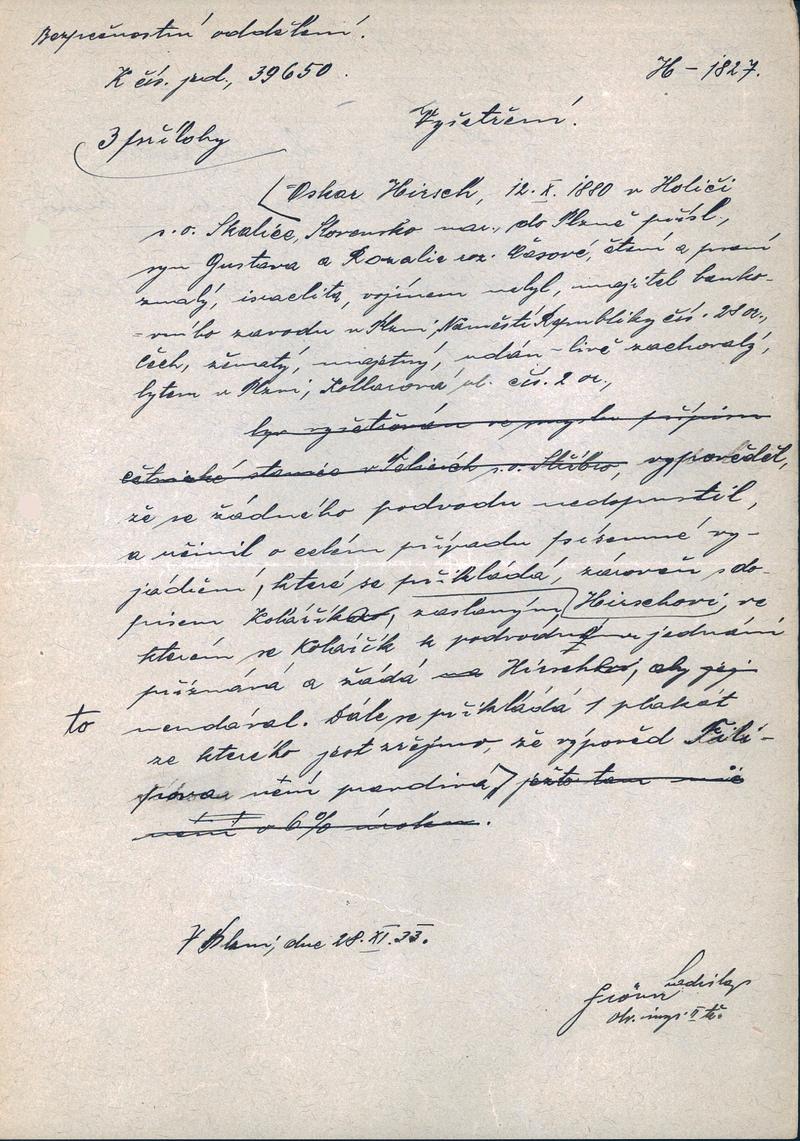 Bezpečnostní oddělení.
K čís. jed., 39650.
H – 1827.
3 přílohy
Vyšetření.
Oskar Hirsch, 12. X. 1880 v Holiči
s.o. Skalice, Slovensko nar., do Plzně přísl.,
syn Gustava a Rozalie roz. čtení a psaní
znalý, israelita, vojínem nebyl, majitel banko-
vního závodu v Plzni, Náměstí Republiky čís. 28 or.,
Čech, ženatý, majetný, údán-livě zachovalý,
bytem v Plzni, Kollarova ul. čís. 2 or.,
byv vyšetřován ve smyslu přípisu
četnické stanice v s.o. Stříbro, vypověděl,
že se žádného podvodu nedopustil,
a učinil o celém případu písemné vy-
jádření, které se přikládá, zároveň s do-
pisem Kolářík zaslaným Hirschovi, ve
kterém se Kolářík k podvodu jednání
přiznává a žádá na Hirsch, aby jej
to neudával. Dále se přikládá 1 plakát
ze kterého jest zřejmo, že výpověď Fili-
pova není pravdivá, ježto tam nic
není o 6% úroku.
V Plzni, dne 28. XI. 33.
Ladislav